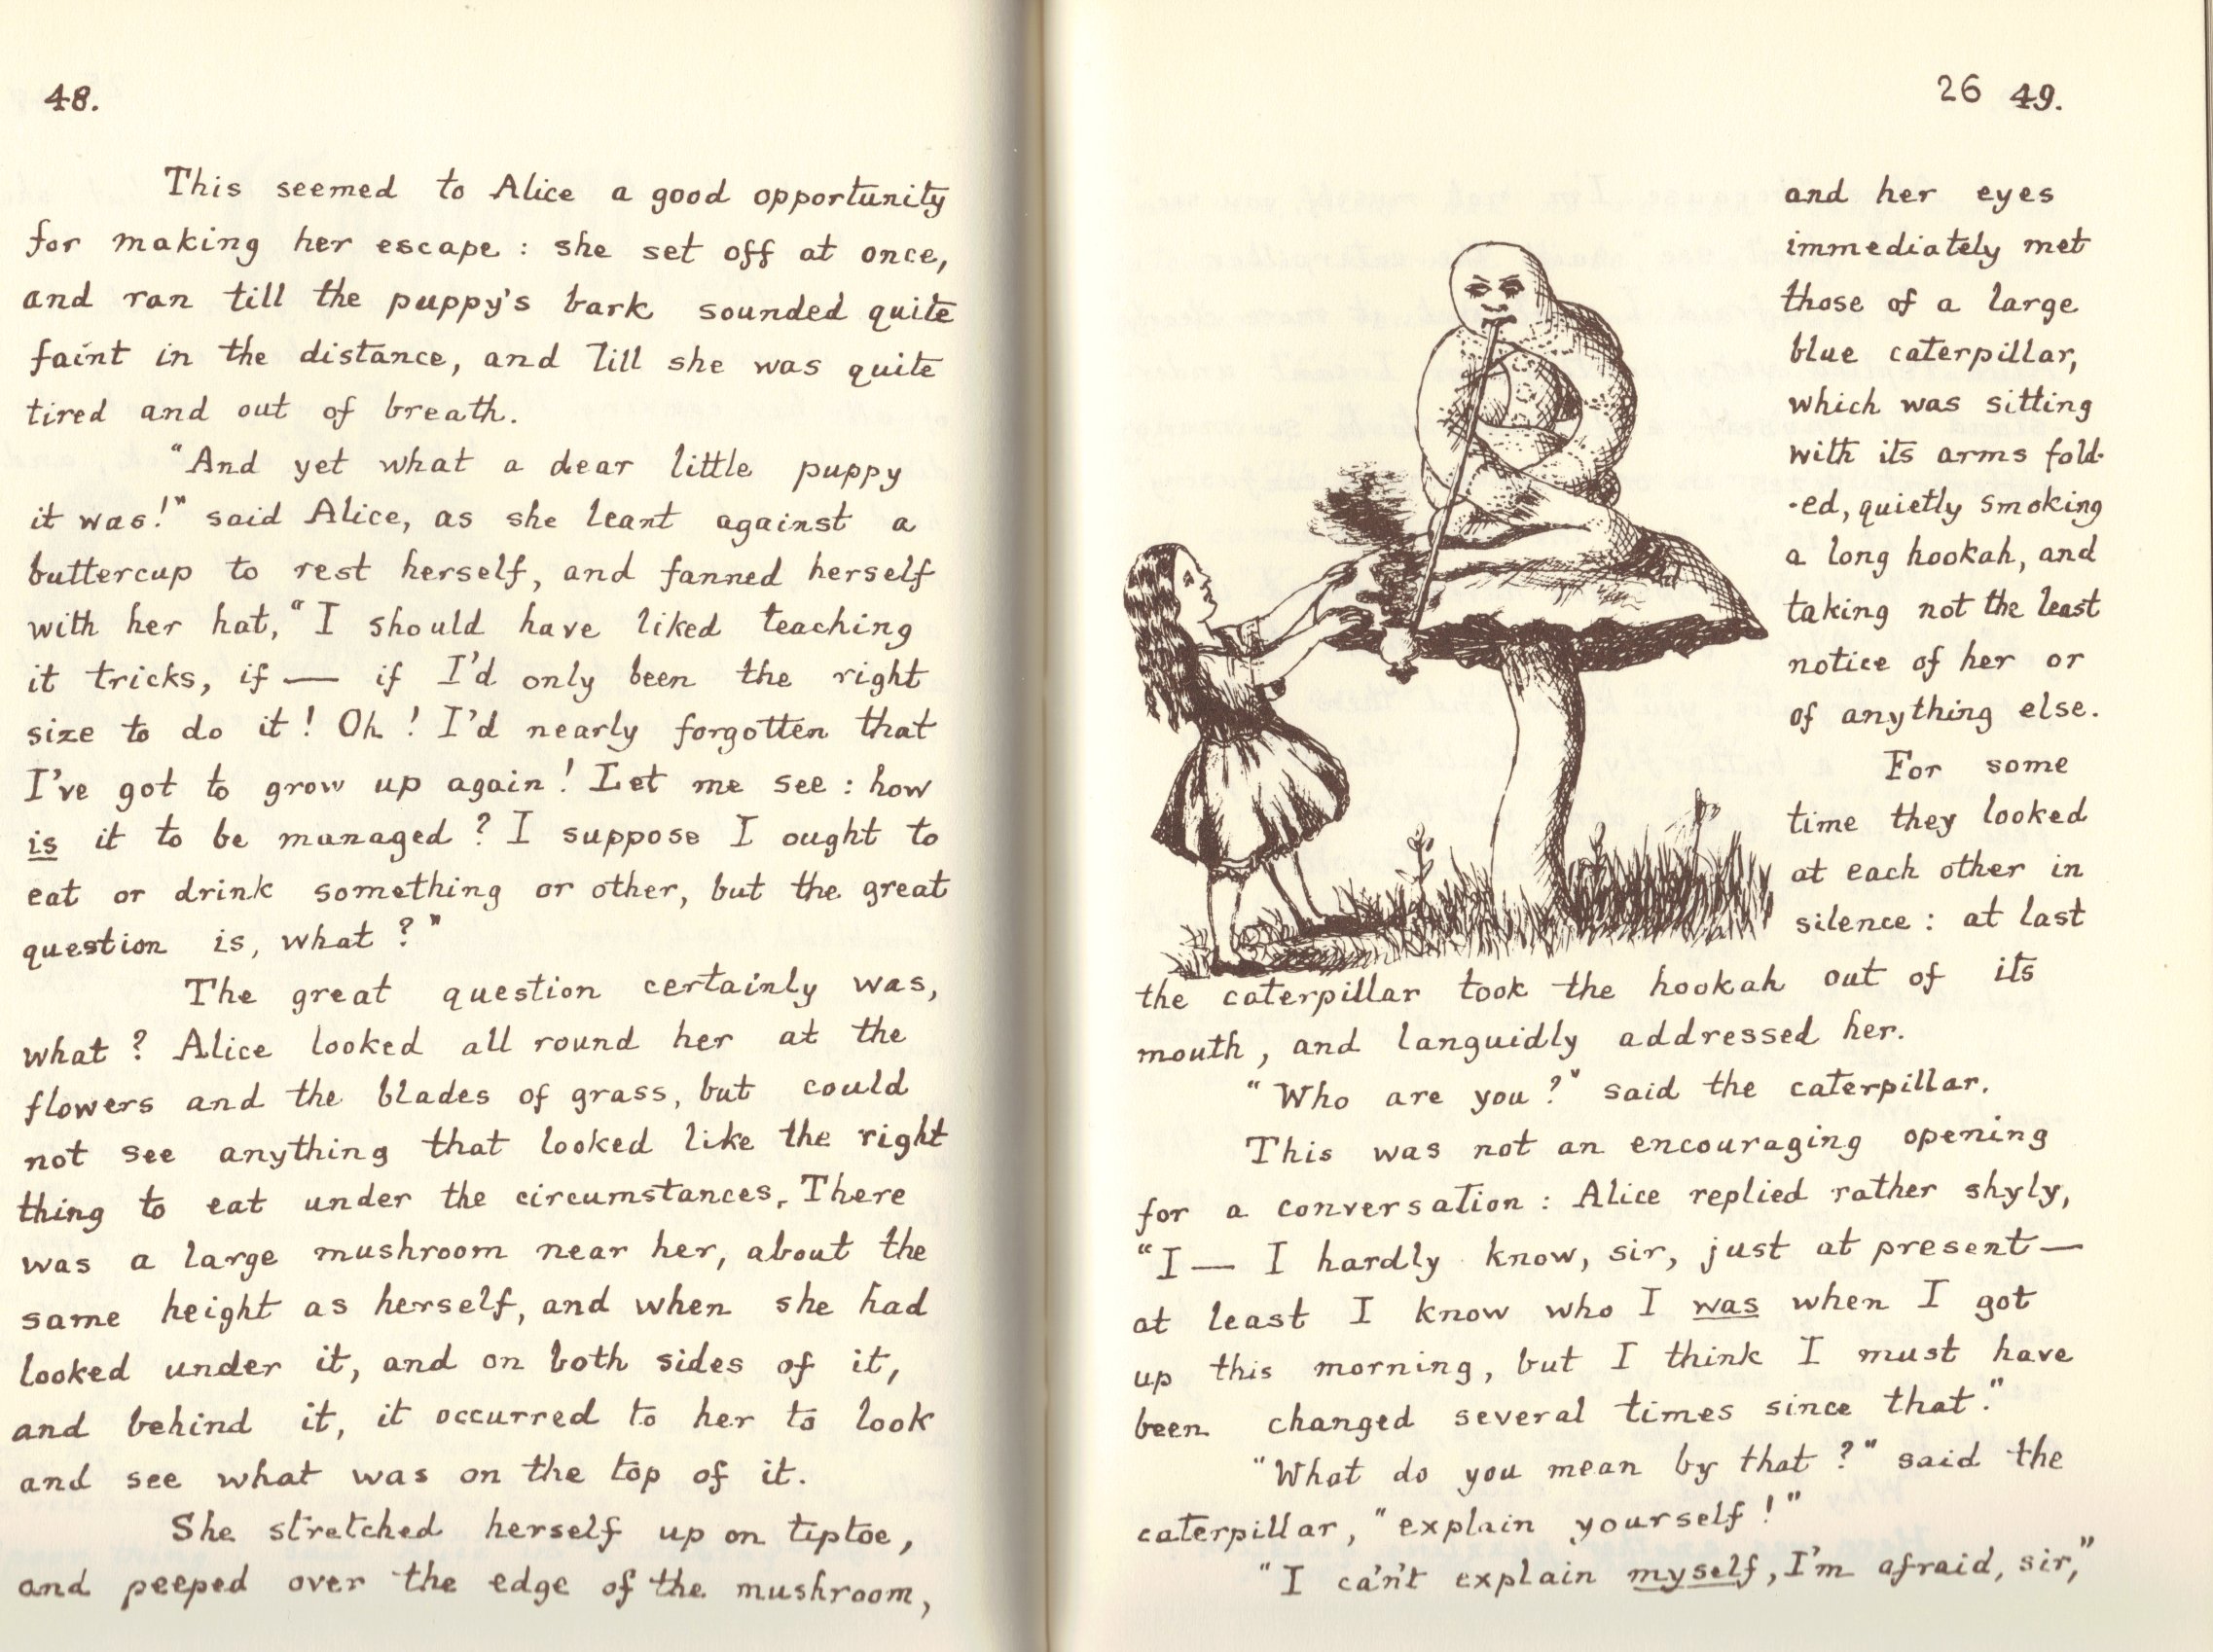 48.
This seemed to Alice a good opportunity
for making her escape : she set off at once,
and ran till the puppy's bark sounded quite
faint in the distance, and till she was quite
tired and out of breath.
"And yet what a dear little puppy
it was!" said Alice, as she leant against a
buttercup to rest herself, and fanned herself
with her hat, "I should have liked teaching
it tricks, if — if I'd only been the right
size to do it! Oh! I'd nearly forgotten that
I've got to grow up again! Let me see : how
is it to be managed? I suppose I ought to
eat or drink something or other, but the great
question is, what?"
The great question certainly was,
what? Alice looked all round her at the
flowers and the blades of grass, but could
not see anything that looked like the right
thing to eat under the circumstances. There
was a large mushroom near her, about the
same height as herself, and when she had
looked under it, and on both sides of it,
and behind it, it occurred to her to look
and see what was on the top of it.
She stretched herself up on tiptoe,
and peeped over the edge of the mushroom,
26 49.
and her eyes
immediately met
those of a large
blue caterpillar,
which was sitting
with its arms fold-
-ed, quietly smoking
a long hookah, and
taking not the least
notice of her or
of anything else.
For some
time they looked
at each other in
silence : at last
the caterpillar took the hookah out of its
mouth, and languidly addressed her.
"Who are you?" said the caterpillar.
This was not an encouraging opening
for a conversation : Alice replied rather shyly,
"I — I hardly know, sir, just at present —
at least I know who I was when I got
up this morning, but I think I must have
been changed several times since that."
"What do you mean by that?" said the
caterpillar, "explain yourself!"
"I ca'n't explain myself, I'm afraid, sir,"